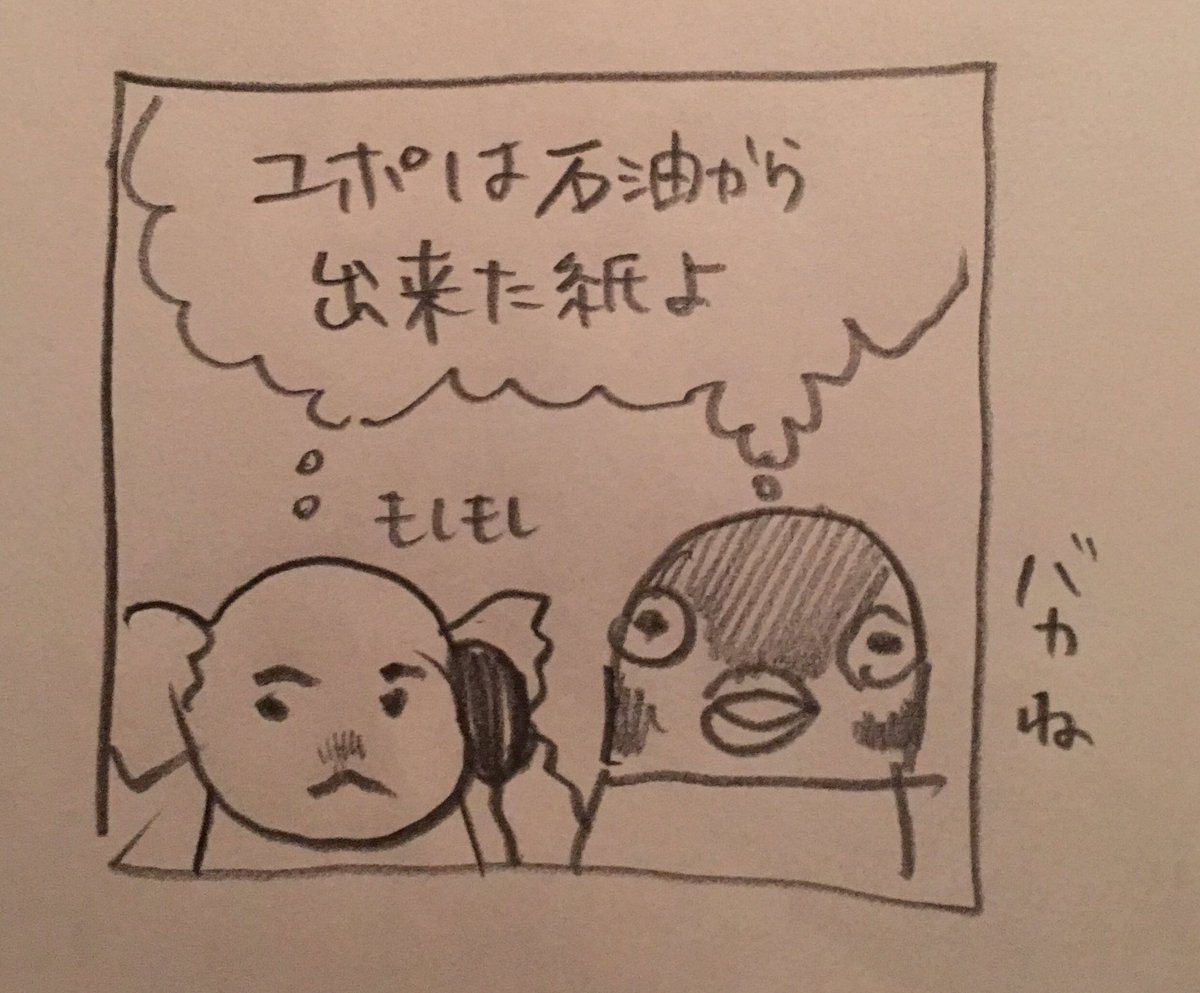 ユポは石油から
出来た紙よ
もしもし
バカね